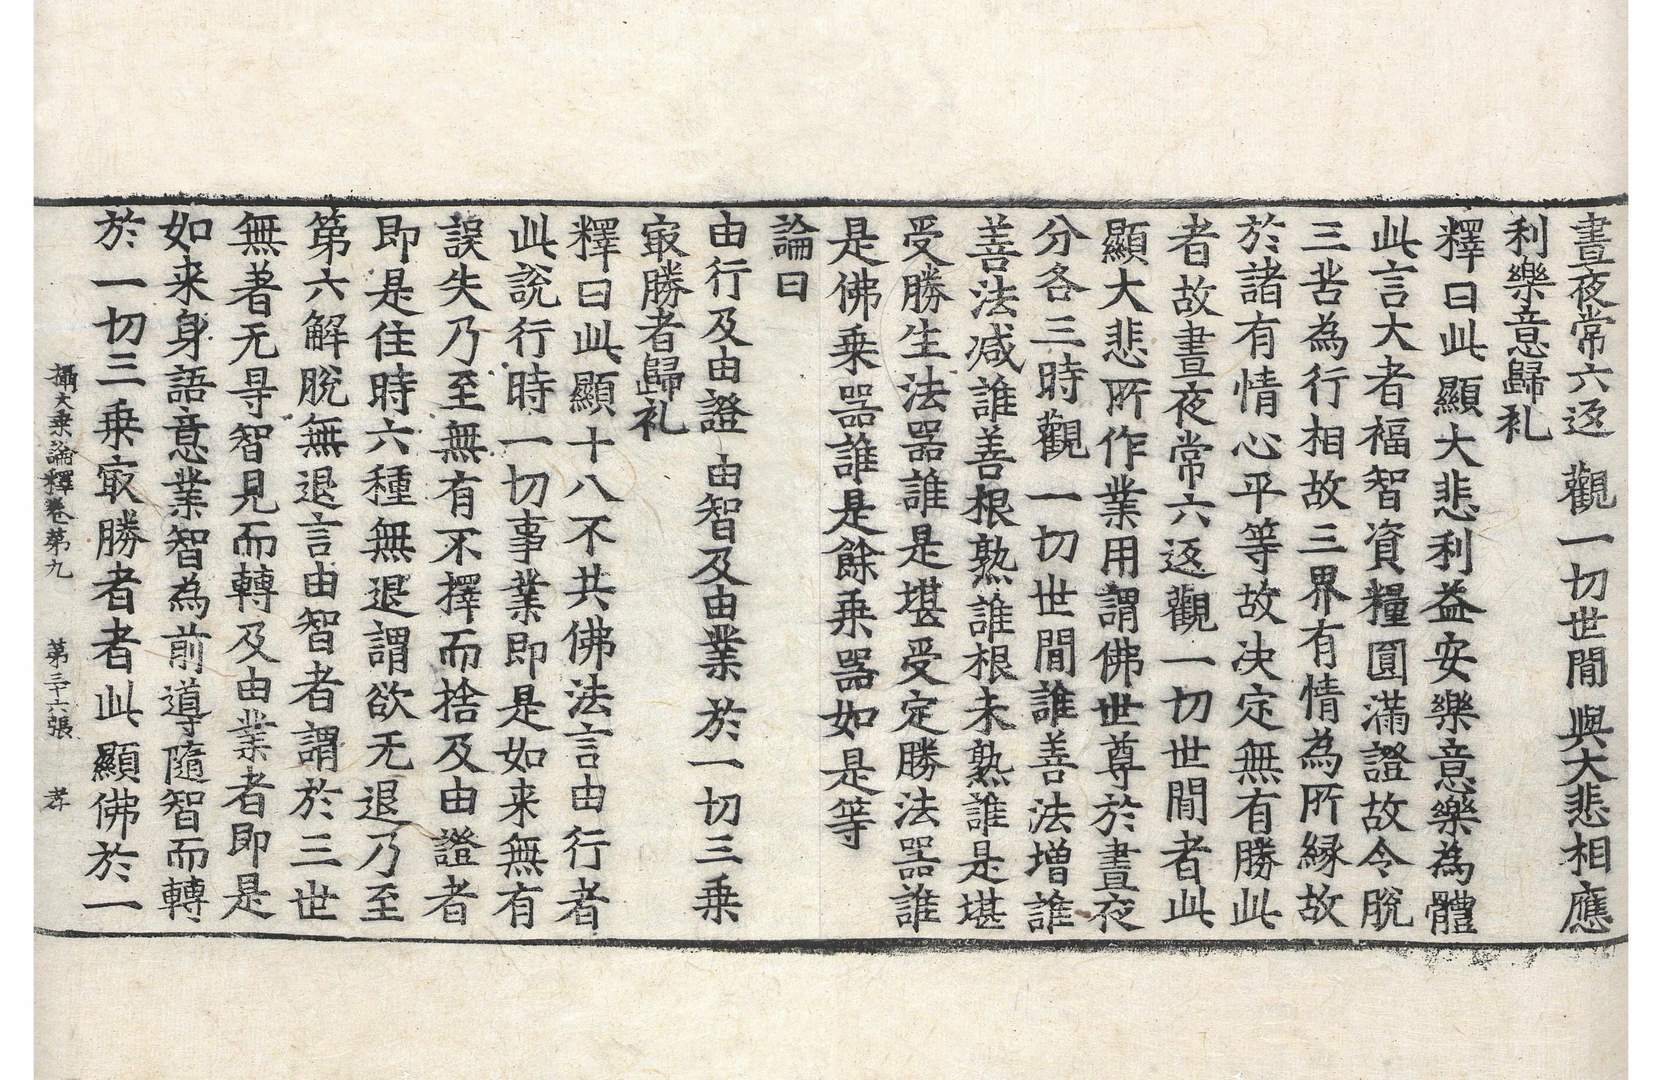 晝夜常六返　觀一切世間　與大悲相應
利樂意歸礼
釋曰此顯大悲利益安樂意樂為體
此言大者福智資糧圓滿證故令脫
三苦為行相故三界有情為所縁故
於諸有情心平等故决定無有勝此
者故晝夜常六返觀一切世間者此
顯大悲所作業用謂佛世尊於晝夜
分各三時觀一切世間誰善法增誰
善法減誰善根熟誰根未熟誰是堪
受勝生法器誰是堪受定勝法器誰
是佛乗器誰是餘乗器如是等
論曰
由行及由證　由智及由業　於一切三乗
㝡勝者歸礼
釋曰此顯十八不共佛法言由行者
此說行時一切事業即是如来無有
誤失乃至無有不擇而捨及由證者
即是住時六種無退謂欲无退乃至
第六解脫無退言由智者謂於三世
無著无㝵智見而轉及由業者即是
如来身語意業智為前導隨智而轉
於一切三乗㝡勝者者此顯佛於一
攝大乗論釋卷第九　第三十六張　孝